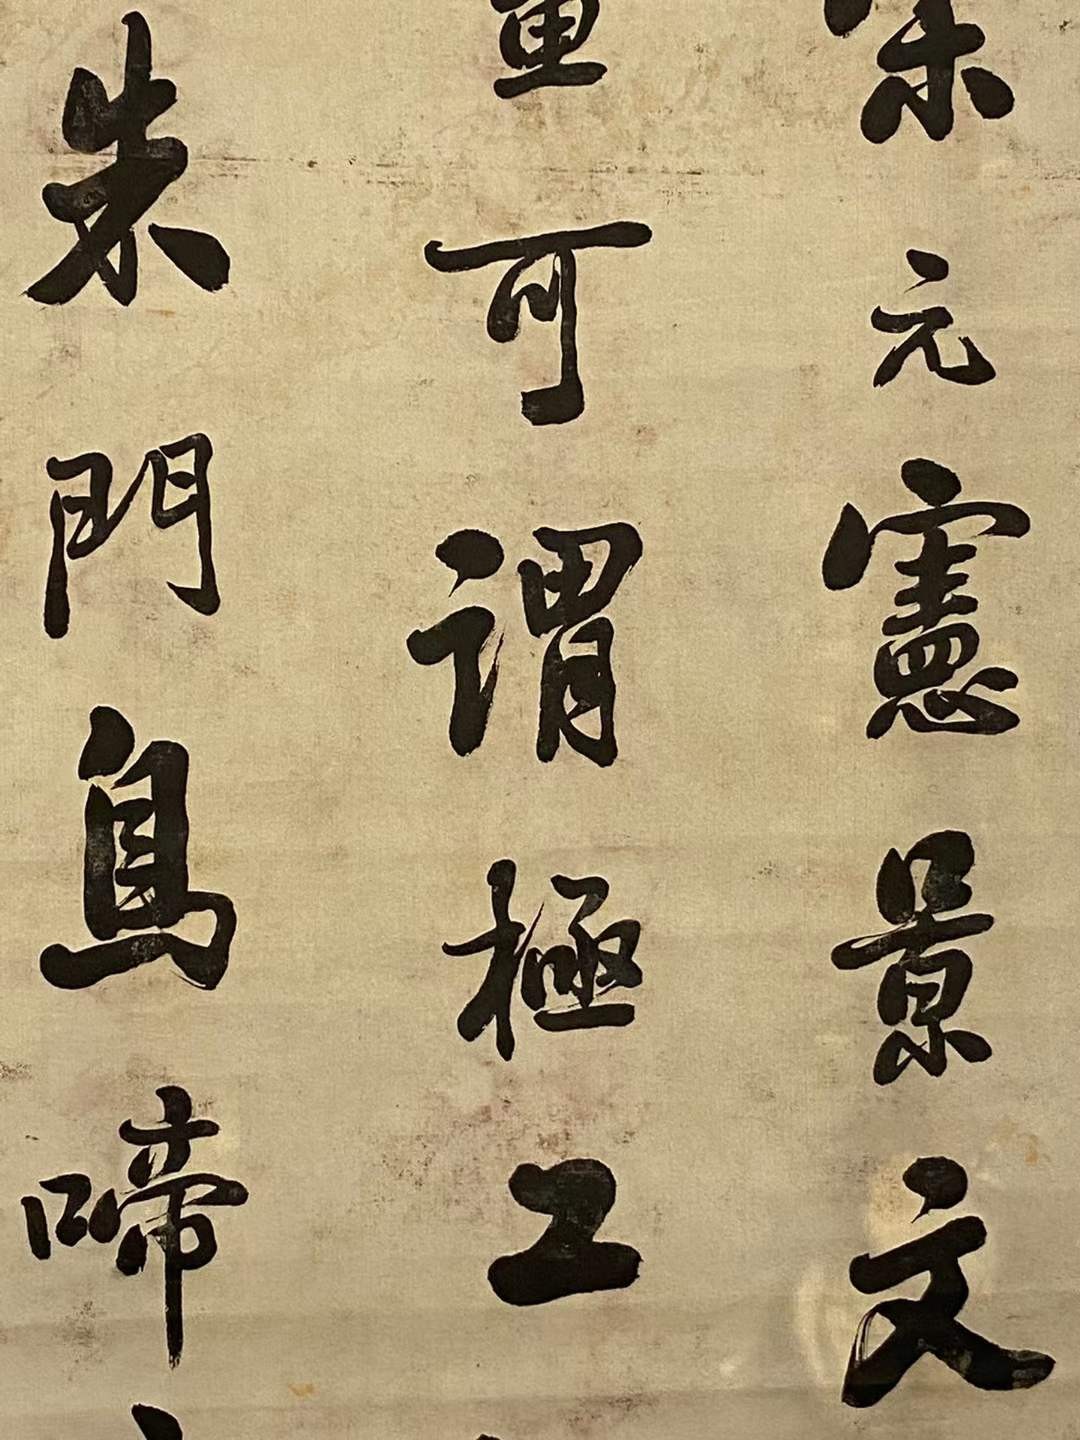 宋元憲景文
可謂極工
朱門鳥啼